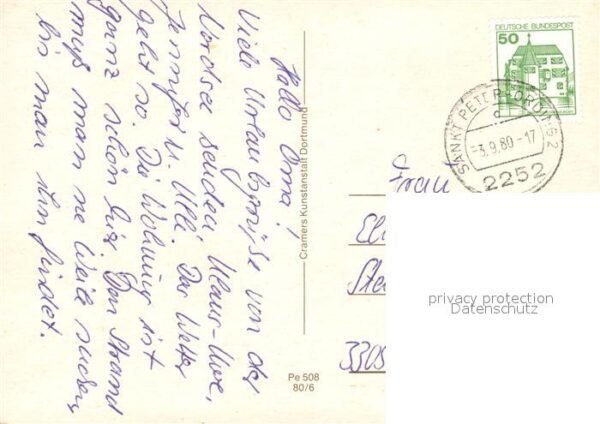 Hallo Oma!
Viele Urlaubsgrüße von der
Nordsee senden Klaus-Uwe,
Jennifer u. Ulli. Das Wetter
geht so. Die Wohnung ist
ganz schön. Den Strand
muß man ne Weile suchen
bis man ihn findet.
Cramers Kunstanstalt Dortmund
Pe 508
80/6
DEUTSCHE BUNDESPOST
50
SANKT PETER-ORDING 2
-3.9.80-17
2252
Frau
El
Ste
3305
privacy protection
Datenschutz